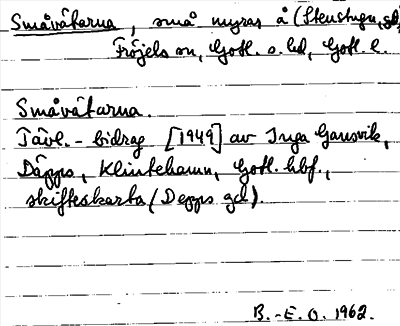 Småvätarna, små myras å (Stenstugu, gd,
Fröjels sn, Gotl. s. hd, Gotl. l.
Småvätarna.
Tävl.-bidrag [1949] av Inga Gansvik,
Däpps, Klintehamn, Gotl. hbf.,
skifteskarta (Depps gd).
B.-E. O. 1962.